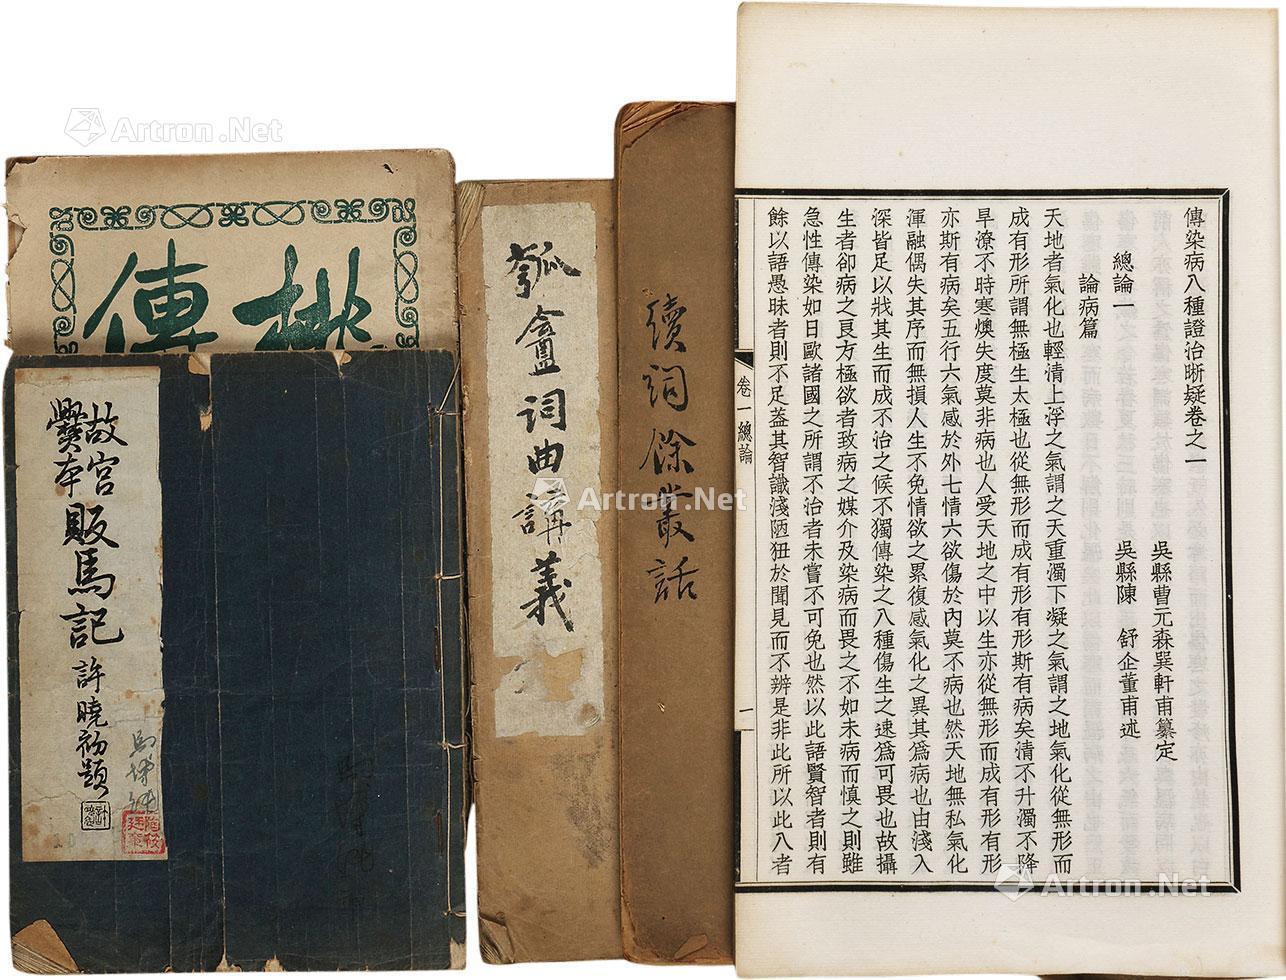 傳染病八種證治晰疑卷之一
總論一
論病篇
吳縣曹元森巽軒甫纂定
吳縣陳　舒企董甫述
天地者氣化也輕清上浮之氣謂之天重濁下凝之氣謂之地氣化從無形而
成有形所謂無極生太極也從無形而成有形有形斯有病矣清不升濁不降
旱潦不時寒燠失度莫非病也人受天地之中以生亦從無形而成有形有形
亦斯有病矣五行六氣感於外七情六欲傷於內莫不病也然天地無私氣化
渾融偶失其序而無損人生不免情欲之累復感氣化之異其為病也由淺入
深皆足以戕其生而成不治之候不獨傳染之八種傷生之速為可畏也故攝
生者卻病之良方極欲者致病之媒介及染病而畏之不如未病而慎之則雖
急性傳染如日歐諸國之所謂不治者未嘗不可免也然以此語賢智者則有
餘以語愚昧者則不足葢其智識淺陋狃於聞見而不辨是非此所以此八者
卷一總論
一
續詞餘叢話
瓠盦詞曲講義
桃
傳
故宮
爨本
販馬記
許曉初題
Artron.Net
Artron.Net
Artron.Net